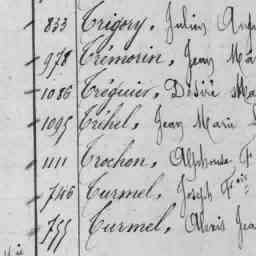 833 Trigory, Julien Ange
978 Trémorin, Jean Ma
1086 Tréguier, Désiré Ma
1095 Trihel, Jean Marie
1111 Trochon, Alphonse F
746 Turmel, Joseph Fois
755 Turmel, Alexis Jea